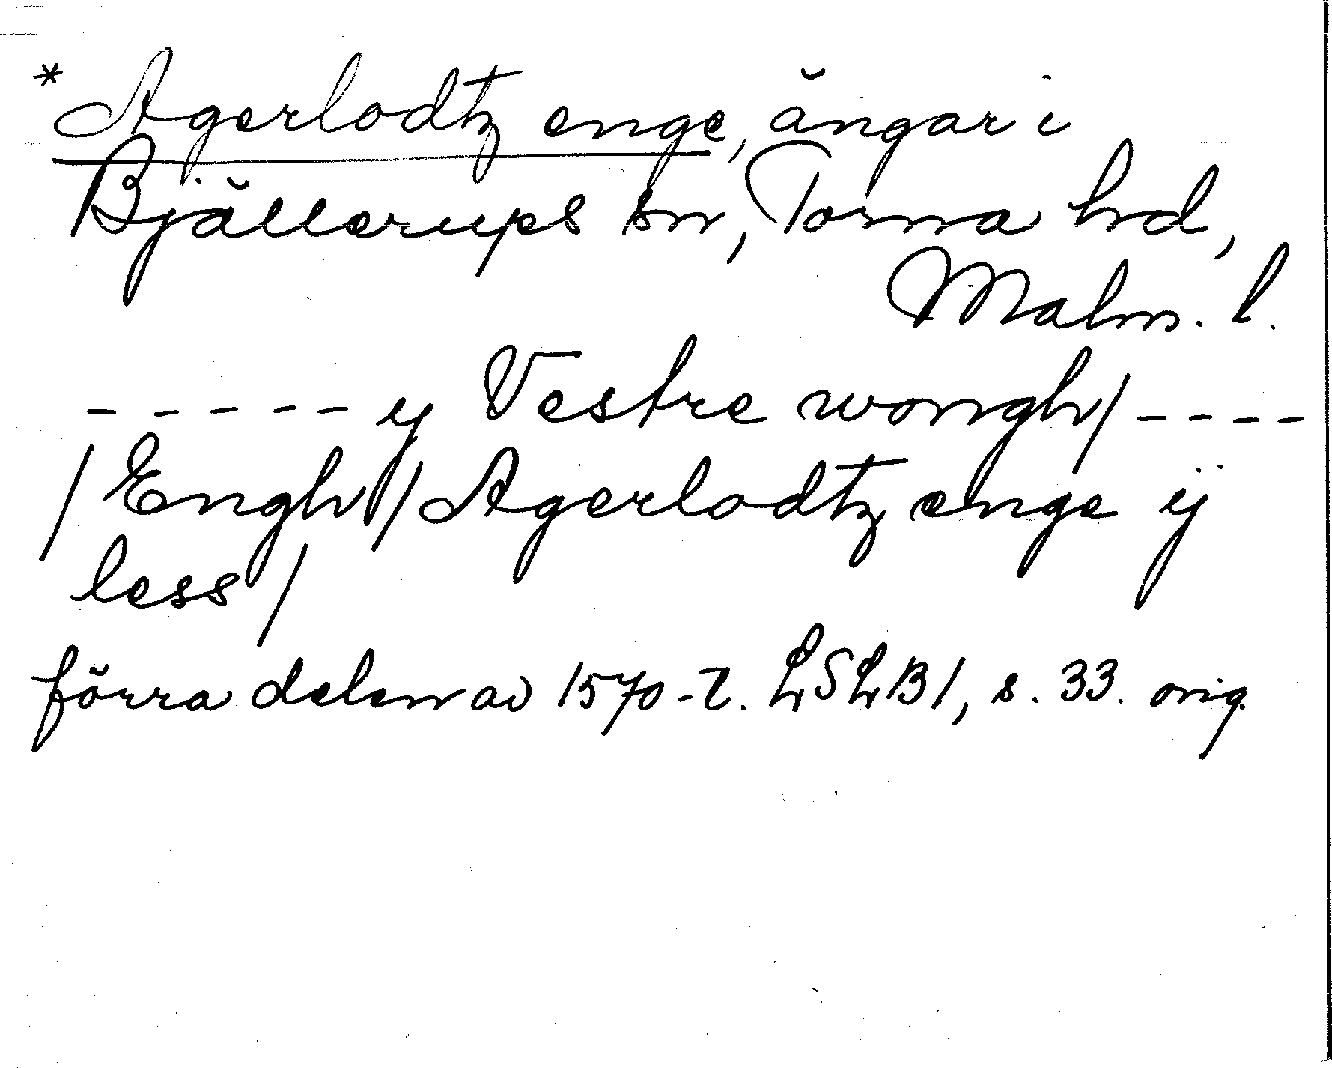 * Agerlodtz enge, ängar i
Bjällerups sn, Torna hd,
Malm. l.
- - - - - y Vestre wongh/ - - - -
/Engh/ Agerlodtz enge ÿ
less/
förra delen av 1570-t. LSLB1, s. 33. orig.